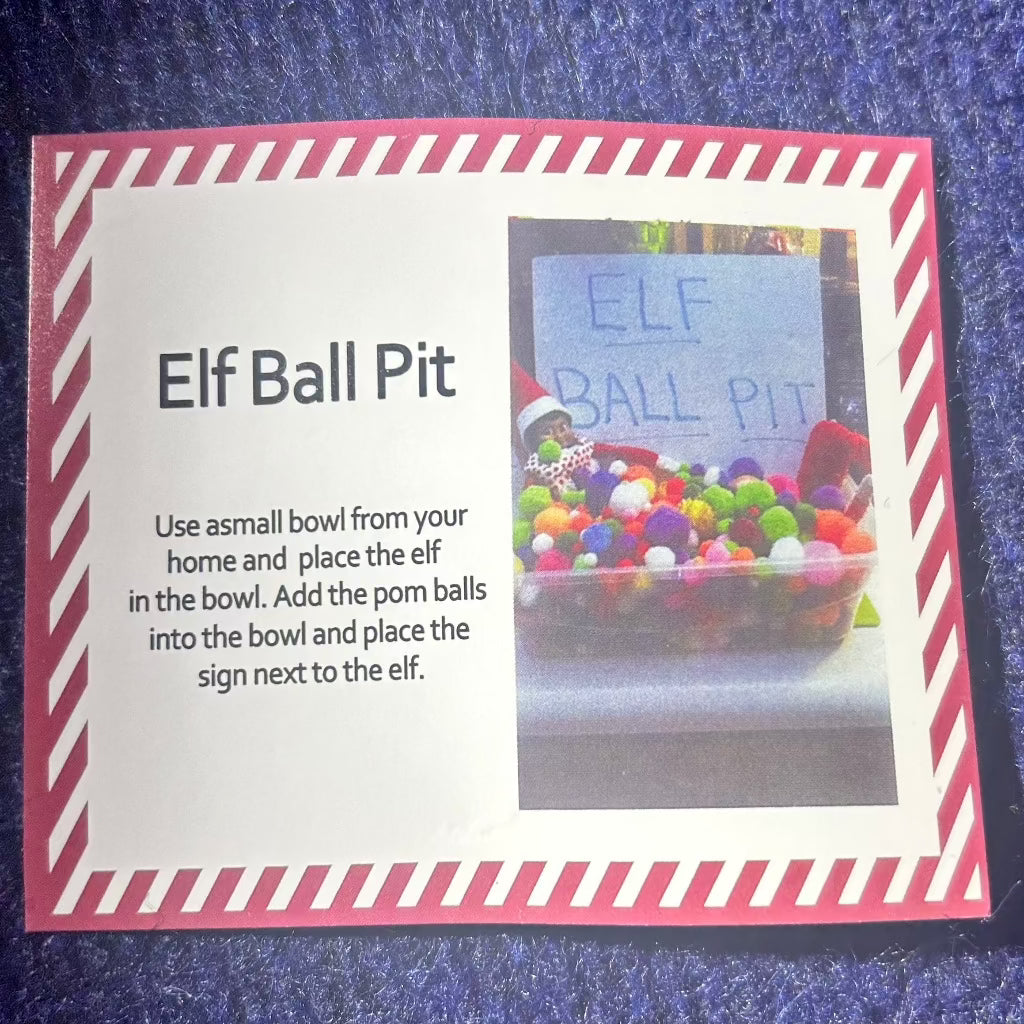 Elf Ball Pit
Use asmall bowl from your
home and place the elf
in the bowl. Add the pom balls
into the bowl and place the
sign next to the elf.
ELF
BALL PIT